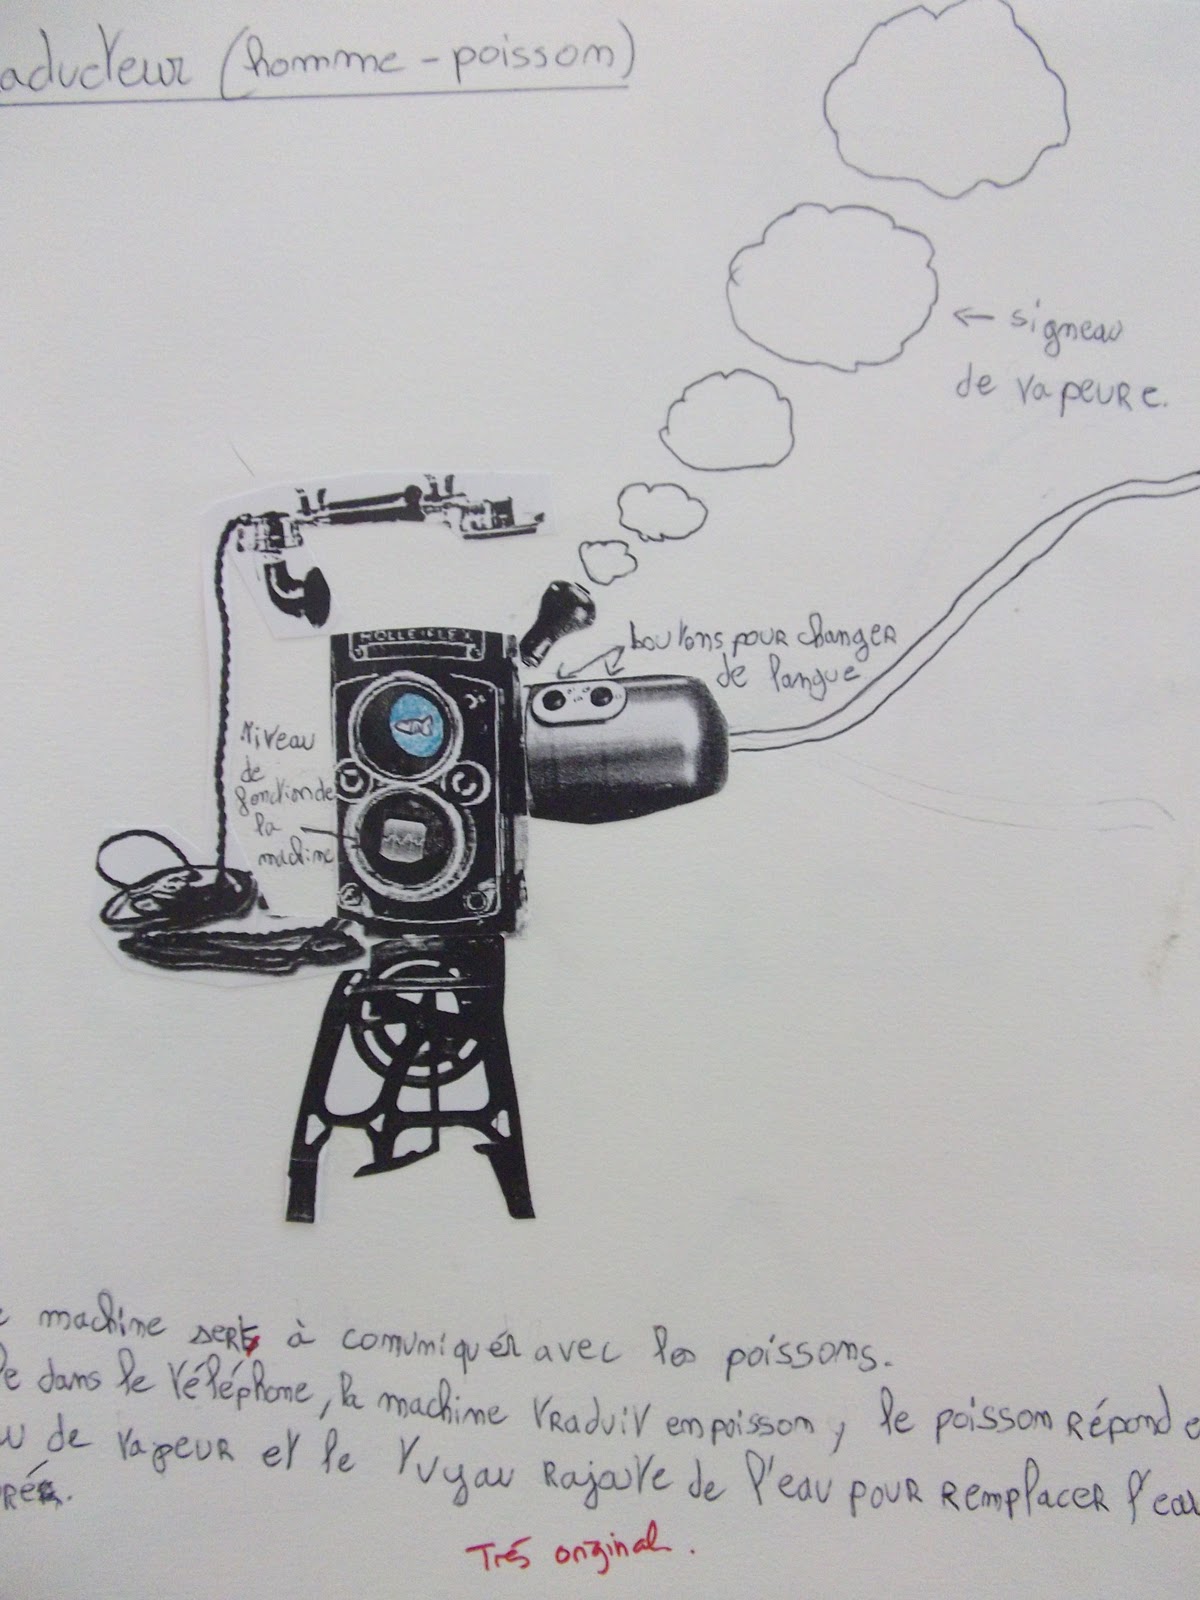 aducteur (homme-poisson)
← signeau
de vapeure.
boutons pour changer
de langue
ROLLEIFLEX
Niveau
de
fonction de
la
machine
machine sert à comuniquér avec les poissons.
le dans le téléphone, la machine traduit em poisson, le poisson répond e
au de vapeur et le tuyau rajoute de l'eau pour remplacer l'eau
Trés original.